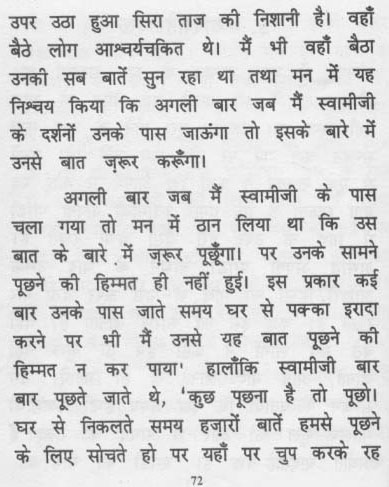 उपर उठा हुआ सिरा ताज की निशानी है। वहाँ
बैठे लोग आश्चर्यचकित थे। मैं भी वहाँ बैठा
उनकी सब बातें सुन रहा था तथा मन में यह
निश्चय किया कि अगली बार जब मैं स्वामीजी
के दर्शनों उनके पास जाऊंगा तो इसके बारे में
उनसे बात ज़रूर करूँगा।
अगली बार जब मैं स्वामीजी के पास
चला गया तो मन में ठान लिया था कि उस
बात के बारे में ज़रूर पूछूँगा। पर उनके सामने
पूछने की हिम्मत ही नहीं हुई। इस प्रकार कई
बार उनके पास जाते समय घर से पक्का इरादा
करने पर भी मैं उनसे यह बात पूछने की
हिम्मत न कर पाया' हालाँकि स्वामीजी बार
बार पूछते जाते थे, 'कुछ पूछना है तो पूछो।
घर से निकलते समय हज़ारों बातें हमसे पूछने
के लिए सोचते हो पर यहाँ पर चुप करके रह
72